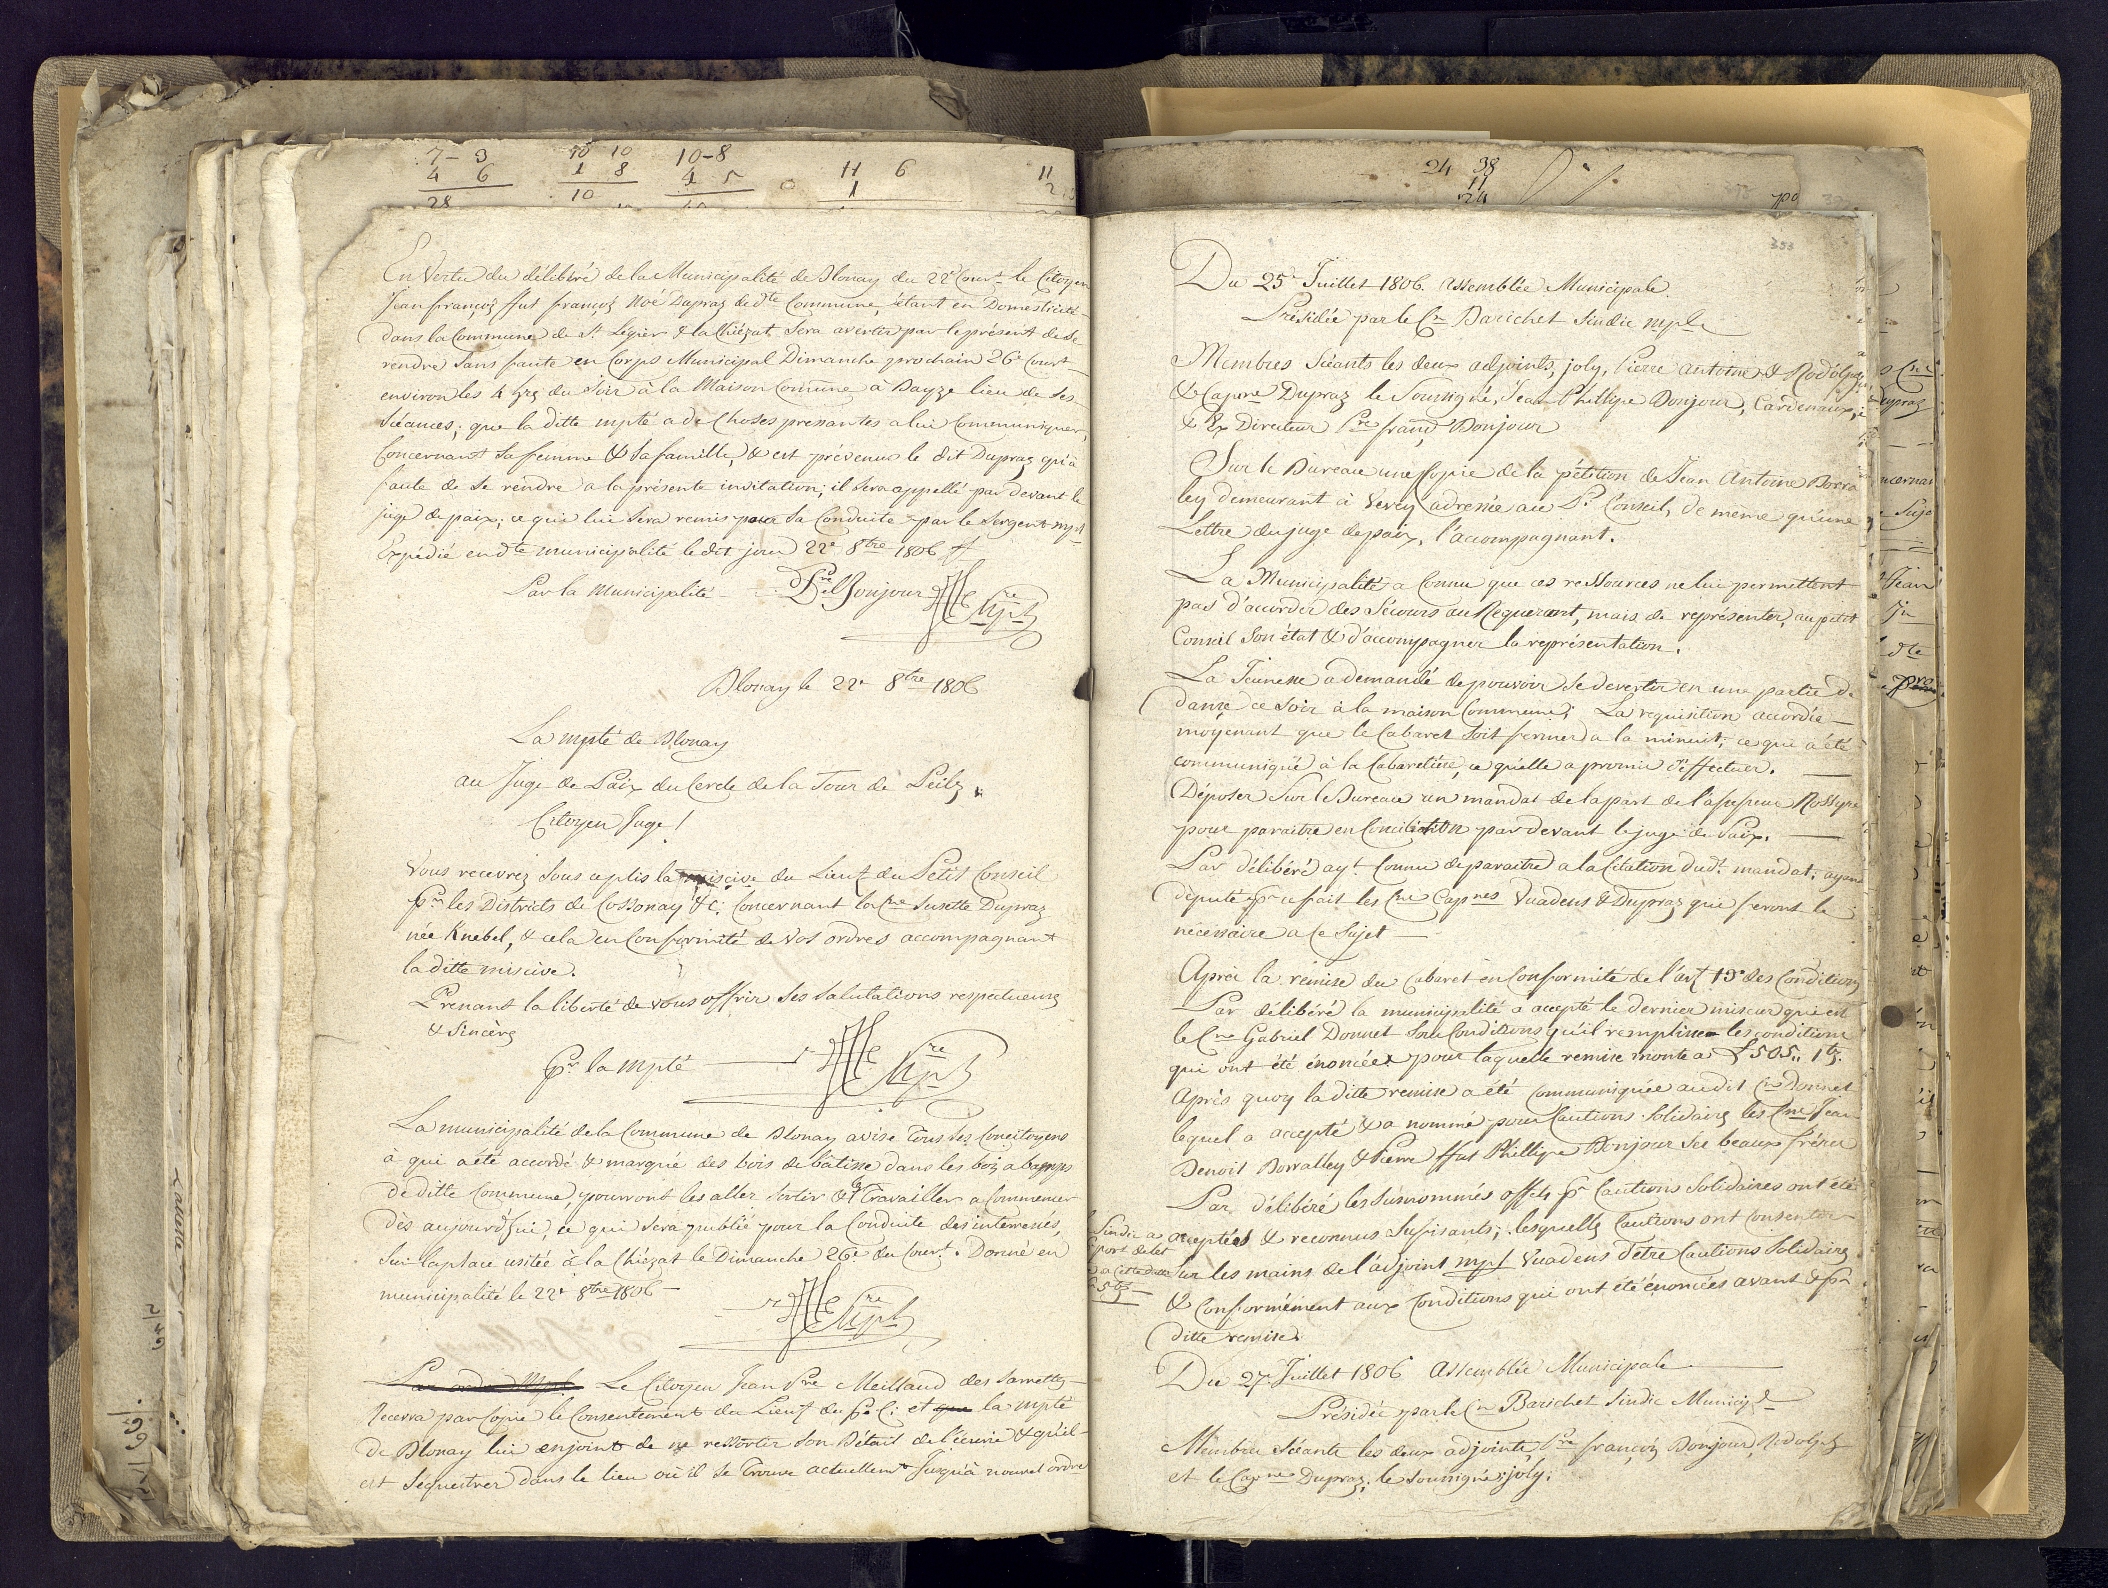 7-3 10 10 10-8 11 6 11
4 6 1 8 4 5 0 1 2
28 10
En Vertu du délibéré de la Municipalité de Blonay du 22e Court le Citoyen
Jean françois ffut françois Noé Dupraz de dte Commune, étant en Domesticité
dans la Commune de St Légier & la Chiézat. Sera avertir par le présent de Se
rendre Sans faute en Corps Municipal Dimanche prochain 26e Court
environ les 4 hrs du Soir à la Maison Comune à Bayze lieu de Ses
Séances; que la ditte mpté a de Choses pressantes a lui Communiquer,
Concernant Sa femme & Sa famille, & est prévenu le dit Dupraz qu'à
faute de Se rendre a la présente invitation; il Sera appellé par devant le
juge de paix; ce qui lui Sera remis pour Sa Conduite par le Sergent mpl
Expédié en dte municipalité le dit jour 22e 8tre 1806
Par la Municipalité Bonjour
Blonay le 22e 8tre 1806
La mpté de Blonay
au Juge de Paix du Cercle de la Tour de Peilz
Citoyen Juge!
Vous recevrez Sous ce plis la miscive du Lieut du Petit Conseil
pr les Districts de Cossonay &c: Concernant la Cne Susette Dupraz
née Knebel, & cela en Conformité de Vos ordres accompagnant
la ditte miscive.
Prenant la liberté de vous offrir Ses Salutations respectueuses
& Sincères
pr la Mpté
La municipalité de la Commune de Blonay avise Tous les Concitoyens
à qui a été accordé & marqué des bois de bâtisse dans les boiz a bamps
de ditte Commune, pourront les aller Sortir & le Travailler a Commencer
dès aujourd'hui, ce qui Sera publié pour la Conduite des interressés,
Sur la place usitée à la Chiézat le Dimanche 26e du Court. Donné en
municipalité le 22e 8tre 1806
Par ordre Mpal Le Citoyen Jean Pre Meillaud des
Recevra par Copie le Consentement du Lieut du P. C: et que la mpté
de Blonay lui enjoint de ne ressortir Son Bétail de l'écurie & qu'il
est Séquestrer dans le lieu où il Se Trouve actuellemt jusqu'à nouvel ordre
24 38
11
24
353
Du 25e Juillet 1806. Assemblée Municipale
Présidée par le Cn Barichet Sindic mple
Membres Séants les deux adjoints, joly, Pierre Antoine & Rodolph
& Capne Dupraz le Soussigné, Jean Phillipe Bonjour, Cardenaux,
& Ex Directeur Pre franç Bonjour
Sur le Bureau une Copie de la pétition de Jean Antoine Borra
ley demeurant à Vevey adressée au Pt Conseil, de même qu'une
Lettre du juge de paix, l'accompagnant.
La Municipalité a Connu que ces ressources ne lui permettent
pas d'accorder des Sécours au Requerant, mais de représenter, au petit
Conseil Son état & d'accompagner la représentation.
La Jeunesse a demandé de pouvoir Se devertir en une partie de
danse ce Soir à la maison Commune; La requisition accordée
moyenant que le Cabaret Soit fermer a la minuit; ce qui a été
communiqué à la Cabaretière, ce quelle a promis d'effectuer.
Déposer Sur le Bureau un mandat de la part de l'assesseur
pour paraitre en Conciliation par devant le juge de Paix.
Par délibéré ayt Connu de paraitre a la Citation dudt mandat. ayant
député pr ce fait les Cne Capnes Vuadens & Dupraz qui feront le
necessaire a Ce Sujet
Après la remise du Cabaret en Conformité de l'art 13e des Conditions
Par délibéré la municipalité a accepté le dernier miseur qui est
le Cne Gabriel Donnet Sou Conditions qu'il remplisse les conditions
qui ont été énoncées pour laquelle remise monte a £505 1 bz.
Après quoy la ditte remise a été communiquée audit Cn Donnet
lequel a accepté & a nommé pour Cautions Solidaires les Cne Jean
Benoit Borralley & Pierre ffut Phillipe Bonjour Ses beaux frères
Par délibéré les Susnommés offerts pr Cautions Solidaires ont été
acceptés & reconnus Sufisants; lesquelles Cautions ont Consenter
Sur les mains de l'adjoint mpl Vuadens d'etre Cautions Solidaires
& Conformément aux Conditions qui ont été énoncées avant de pr
ditte remise
Sindic a
port de let
a Cette datte
5 bz
Du 27e Juillet 1806 Assemblée Municipale
Présidée par le Cn Barichet Sindic Municipl
Membre Séants les deux adjoints, Pre françois Bonjour, Rodolph
et le Capne Dupraz, le Soussigné, joly.